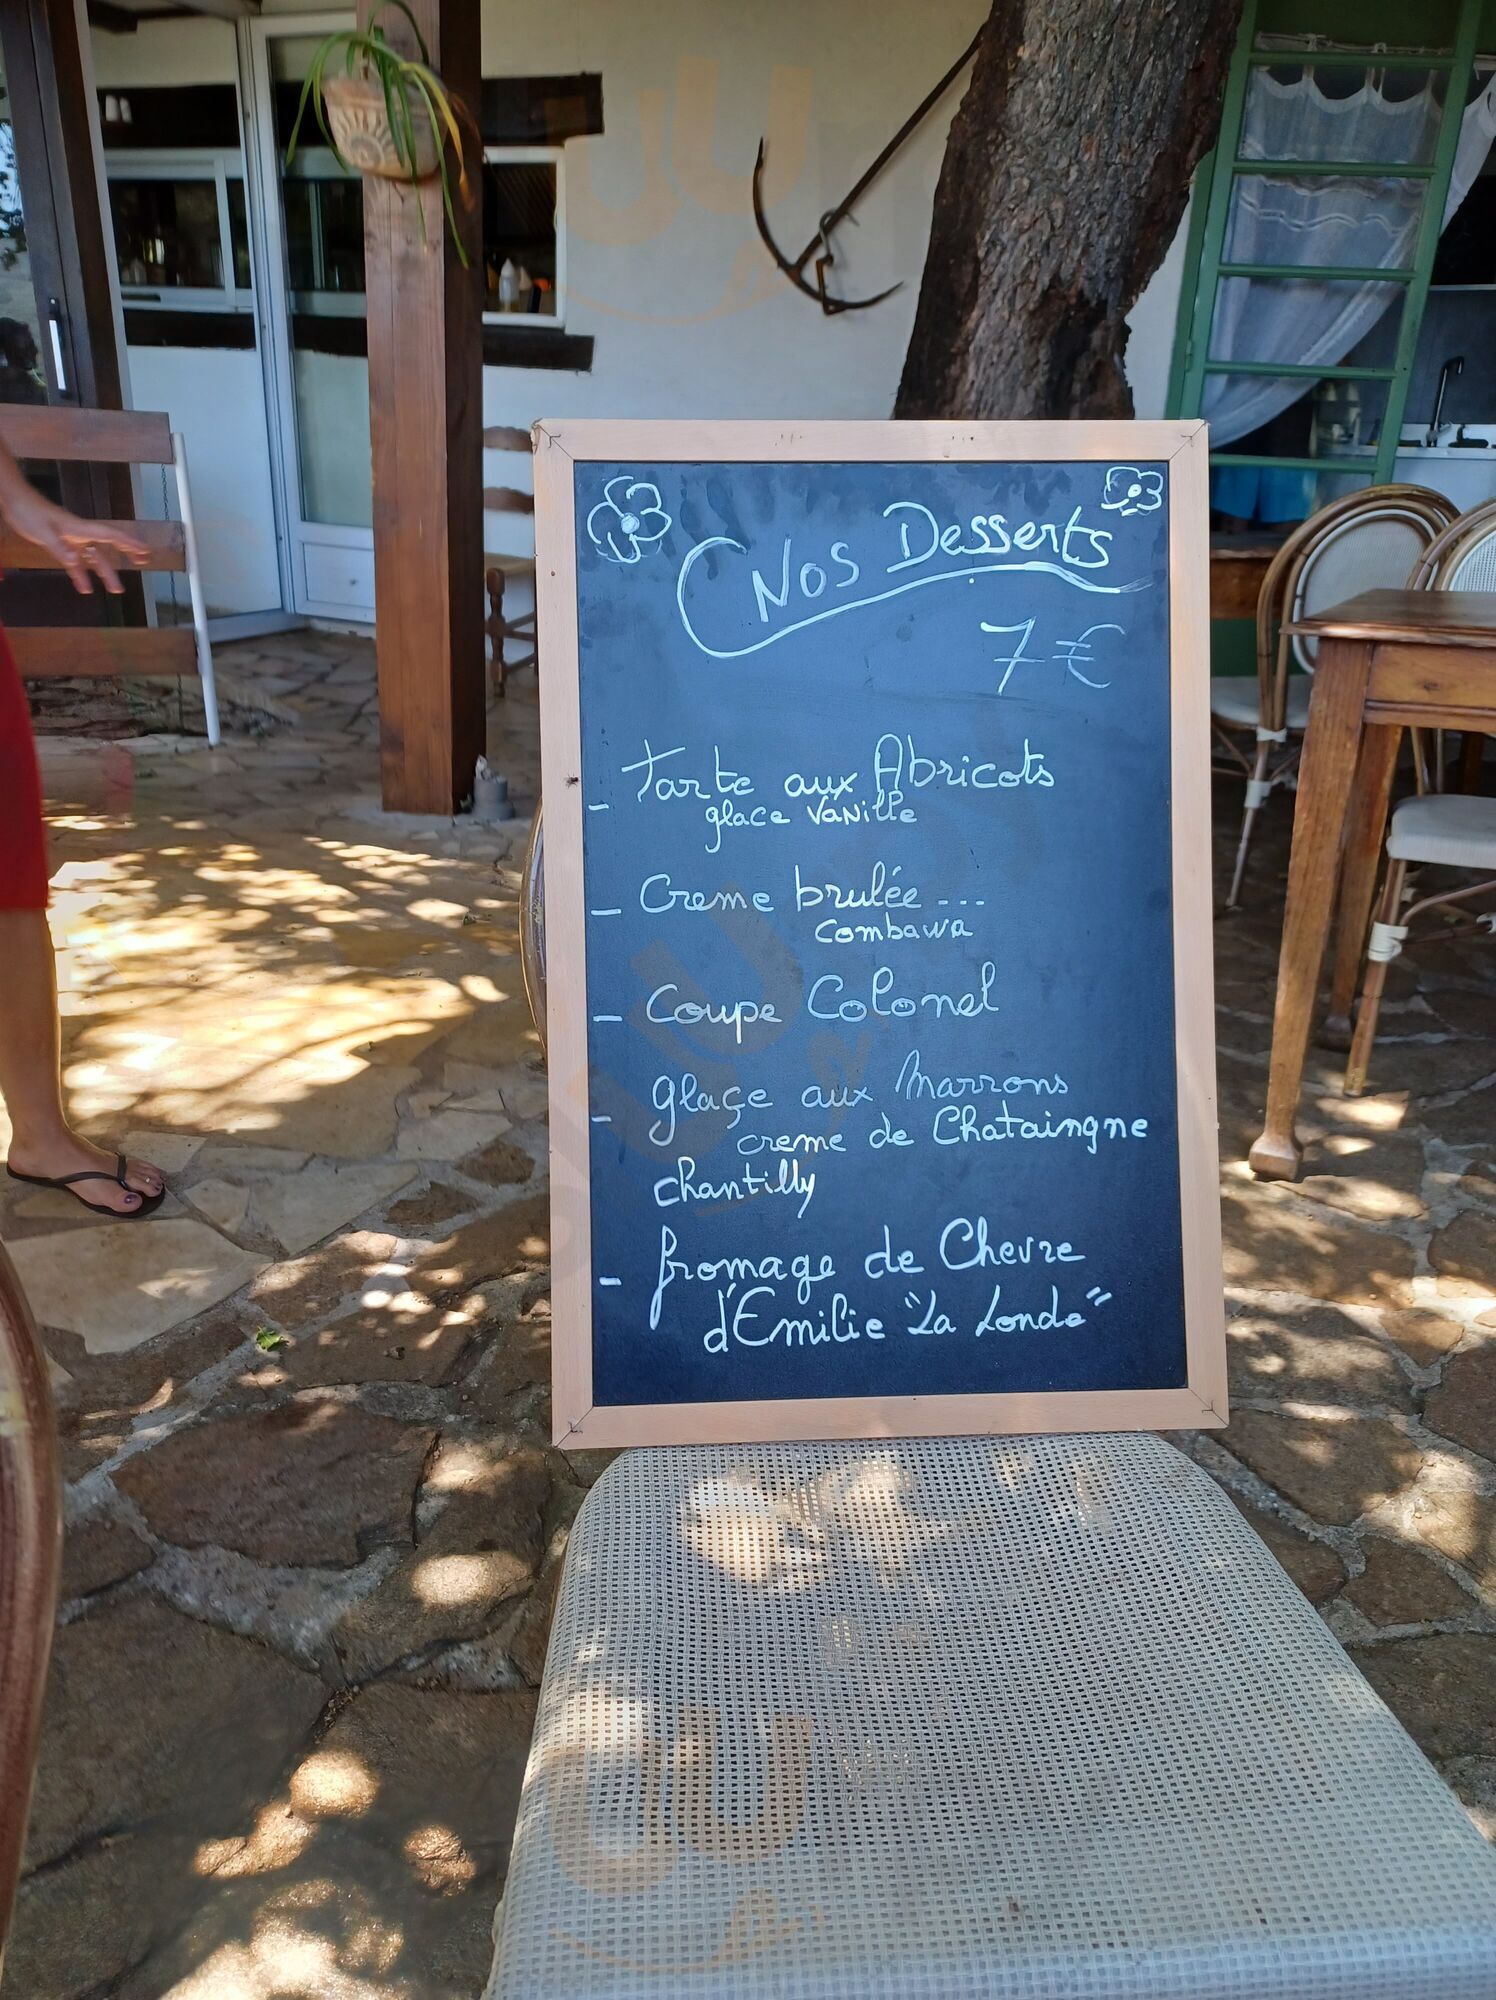 Nos Desserts
7€
- Tarte aux Abricots
glace Vanille
- Creme brulée ...
Combawa
- Coupe Colonel
- glaçe aux Marrons
creme de Chataingne
chantilly
- fromage de Chevre
d'Emilie "La Londe"